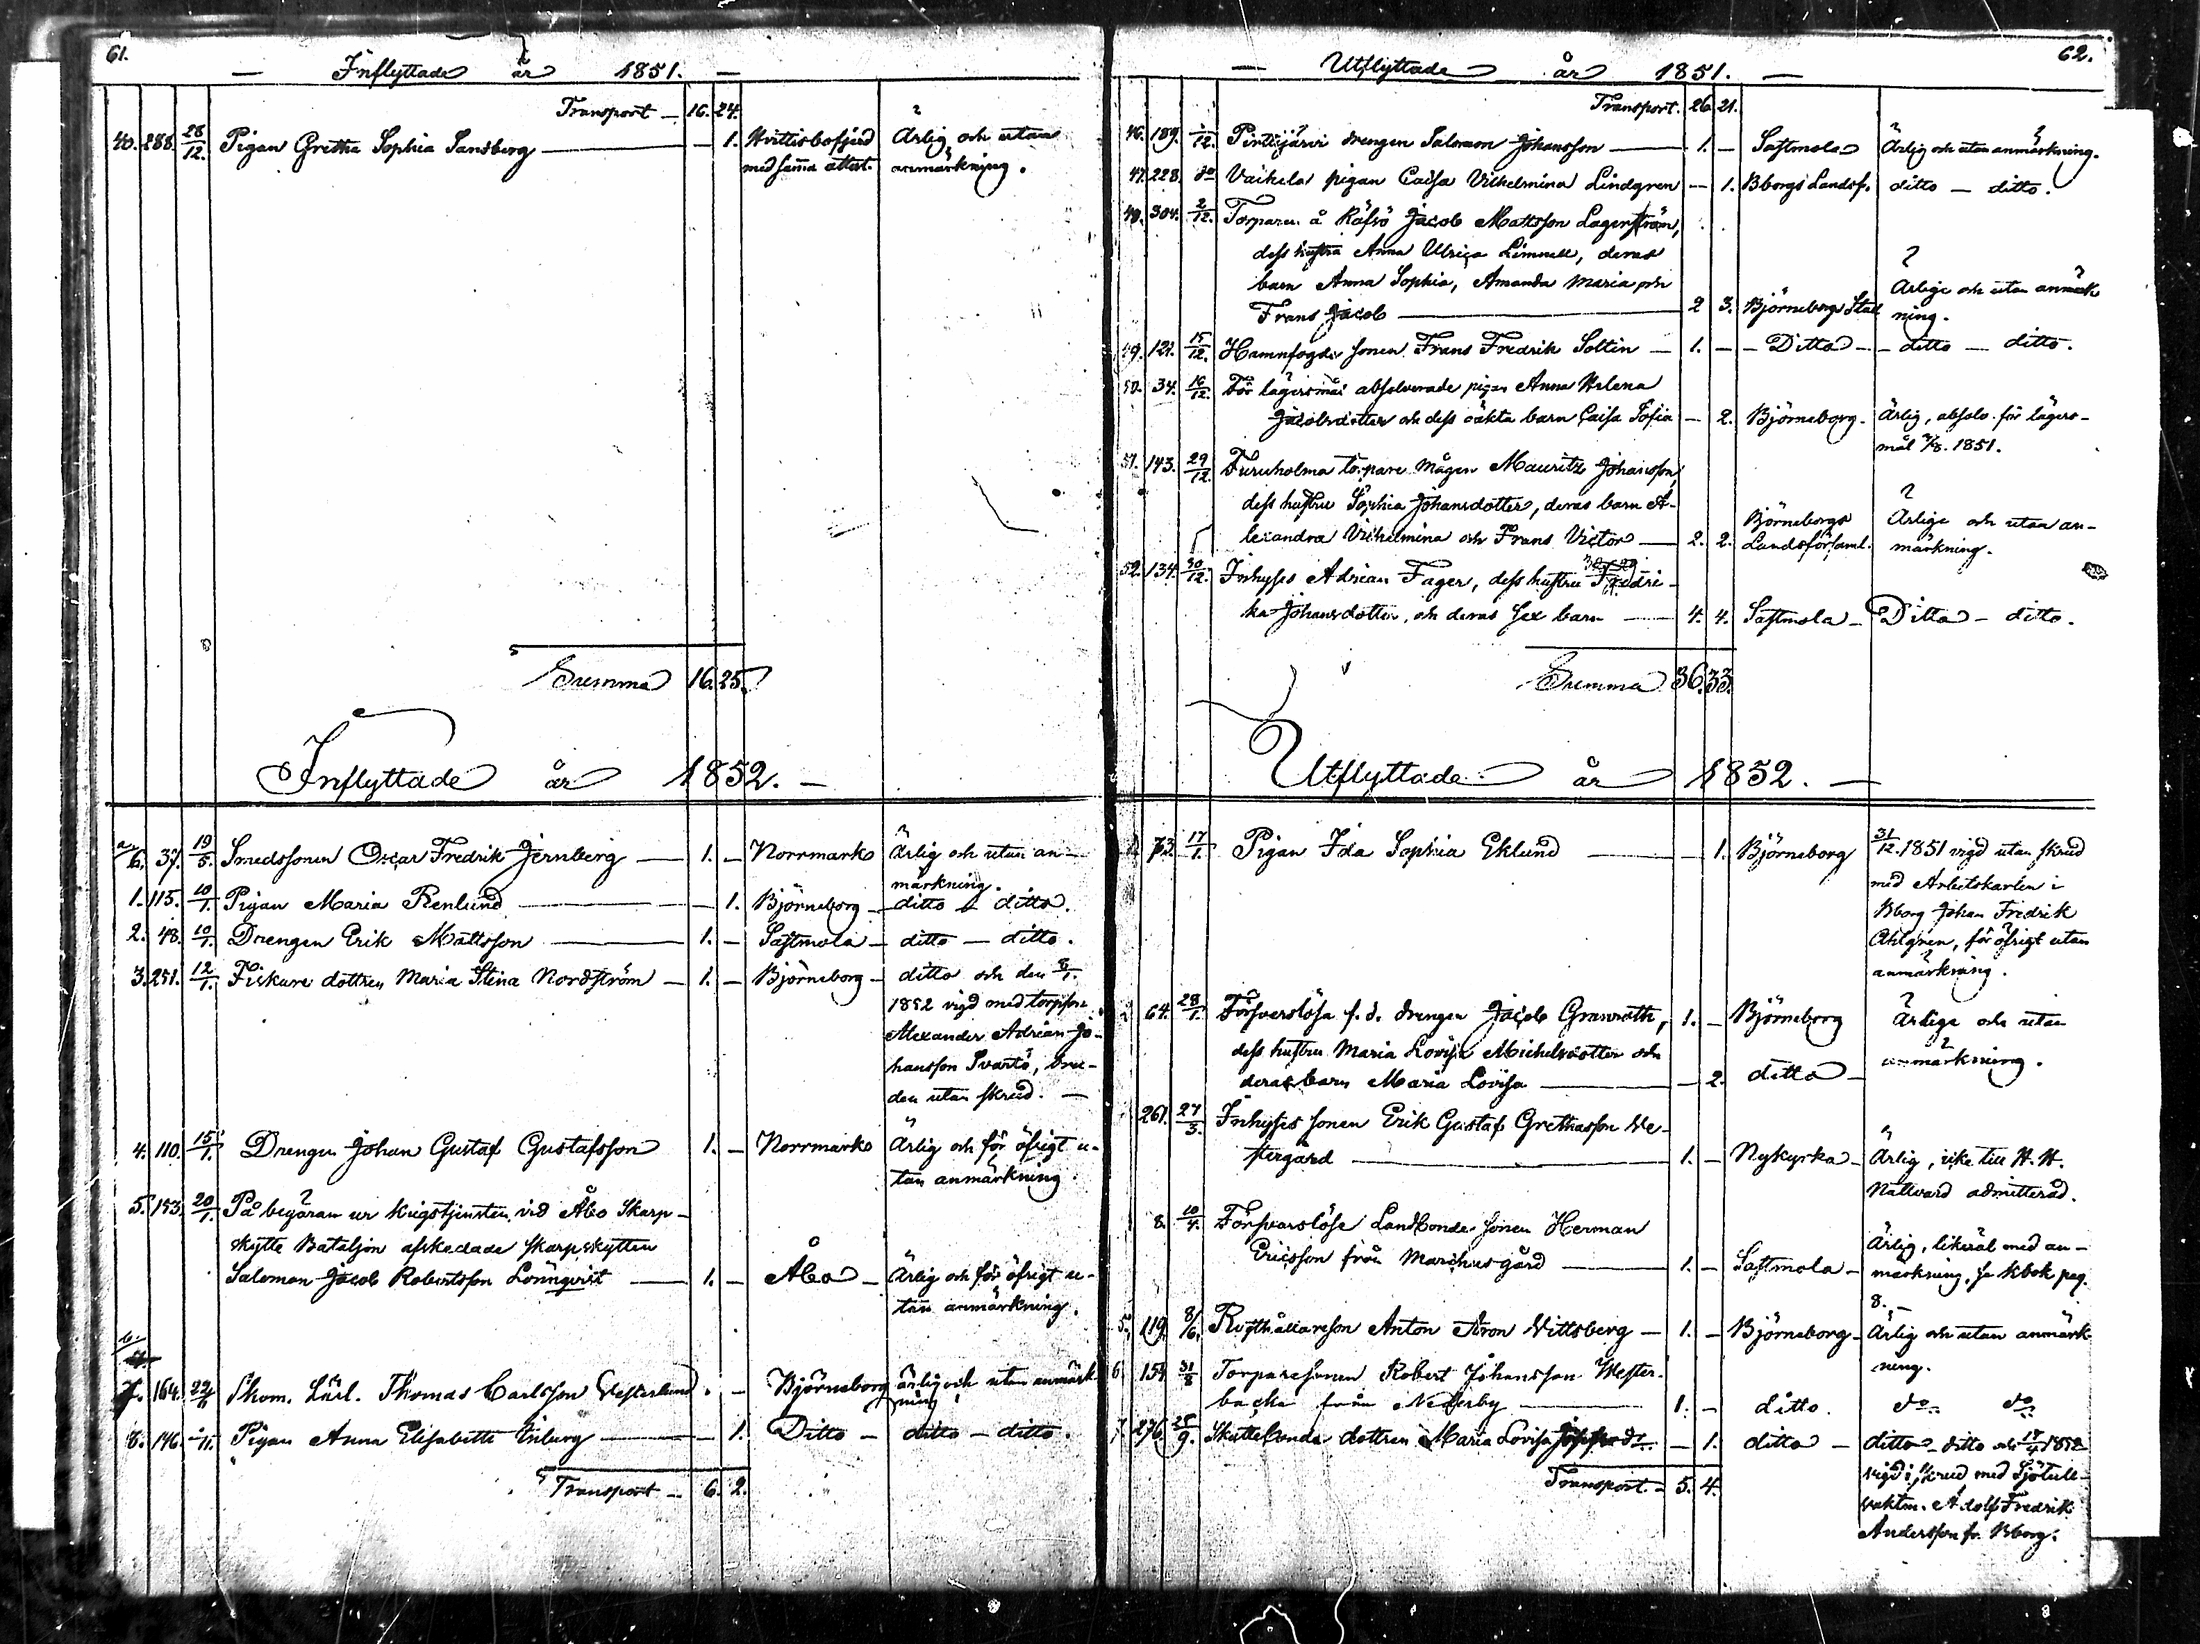 61.
— Inflyttade år 1851. —
Transport — 16. 24.
40. 288. 28/12. Pigan Gretha Sophia Sandberg — — 1. Hvittisbofjerd Ärlig och utan
med samma attest. anmärkning.
Summa 16. 25.
Inflyttade år 1852. —
6. 37. 19/5. Smedssonen Oscar Fredrik Jernberg — 1. — Norrmark Ärlig och utan an-
märkning.
1. 115. 10/1. Pigan Maria Renlund — — 1. Björneborg — ditto — ditto.
2. 48. 10/1. Drengen Erik Mattsson — 1. — Sastmola — ditto — ditto.
3. 251. 12/1. Fiskare dottren Maria Stina Nordström — 1. — Björneborg — ditto och den 6/1.
1852 vigd med torpson
Alexander Adrian Jo-
hansson Svartö, bru-
den utan skrud. —
4. 110. 15/1. Drengen Johan Gustaf Gustafsson 1. — Norrmark Ärlig och för öfrigt u-
tan anmärkning.
5. 153. 20/1. På begäran ur krigstjensten vid Åbo Skarp-
skytte Bataljon afskedade skarpskytten
Salomon Jacob Robertsson Lönnqvist — 1. — Åbo — Ärlig och för öfrigt u-
tan anmärkning.
7. 164. Skom. Lärl. Thomas Carlsson Vesterlund . — Björneborg ärlig och utan anmärk
ning
8. 146. Pigan Anna Elisabetth — — 1. Ditto — ditto — ditto.
Transport — 6. 2.
62.
— Utflyttade år 1851. —
Transport. 26. 21.
46. 189. Pinttijärvi drengen Salomon Johansson — 1. — Sastmola Ärlig och utan anmärkning.
47. 228. do Vaikela pigan Caisa Vilhelmina Lindgren — 1. Bborgs Landsf. ditto — ditto.
48. 304. 2/12. Torparen å Räfsö Jacob Mattsson Lagerström,
dess hustru Anna Ulrica Limnell, deras
barn Anna Sophia, Amanda Maria och Ärlige och utan anmärk
Frans Jacob — 2 3. Björneborgs Stad ning.
49. 122. 15/12. Hamnfogde sonen Frans Fredrik Soltin — 1. — — Ditto — — ditto — ditto.
50. 34. 16/12. För lägersmål absolverade pigan Anna Helena
Jacobsdotter och dess oäkta barn Caisa Sofia — 2. Björneborg. Ärlig, absolv. för lägers-
mål 1851.
51. 143. 29/12. Furuholma torpare mågen Mauritz Johansson,
dess hustru Sophia Johansdotter, deras barn A- Björneborgs Ärlige och utan an-
lexandra Vilhelmina och Frans Victor — 2. 2. Landsförsaml. märkning.
52. 134. 30/12. Inhyses Adrian Fager, dess hustru Fredri-
ka Johansdotter, och deras sex barn — 4. 4. Sastmola — Ditto — ditto.
Summa 36. 33.
Utflyttade år 1852. —
73. 17/1. Pigan Ida Sophia Eklund — — 1. Björneborg 31/12. 1851 vigd utan skrud
med Arbetskarlen i
Bborg Johan Fredrik
Ahlgren, för öfrigt utan
anmärkning.
2 64. 28/1. Försvarslösa f. d. drengen Jacob Granroth, 1. — Björneborg Ärlige och utan
dess hustru Maria Lovisa Michelsdotter och anmärkning.
deras barn Maria Lovisa — — 2. ditto —
261. 27/3. Inhyses sonen Erik Gustaf Grethasson We-
stergård — 1. — Nykyrka — Ärlig, icke till H. H.
Nattvard admitterad.
8. 10/4. Försvarslöse Landbonde sonen Herman
Ericsson från Marihusgård — 1. — Sastmola — Ärlig, likväl med an-
märkning, se Kbok pag.
8.
5. 119. 8/6. Rusthållareson Anton Aron Wittsberg — 1. — Björneborg — Ärlig och utan anmärk-
ning.
6 154 31/8 Torparesonen Robert Johansson Wester-
backa från Nederby — 1. — ditto. do do
7. 276. 25/9. Skattebonde dottren Maria Lovisa — 1. ditto — ditto — ditto och 1852
vigd i skrud med Sjötull-
vaktm. Adolf Fredrik
Andersson fr. Bborg.
Transport — 5. 4.